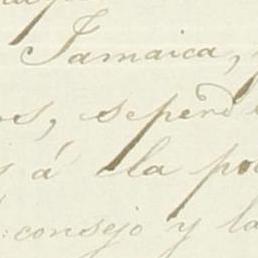 Jamaica,
os, seperd
s á la po
consejo y la